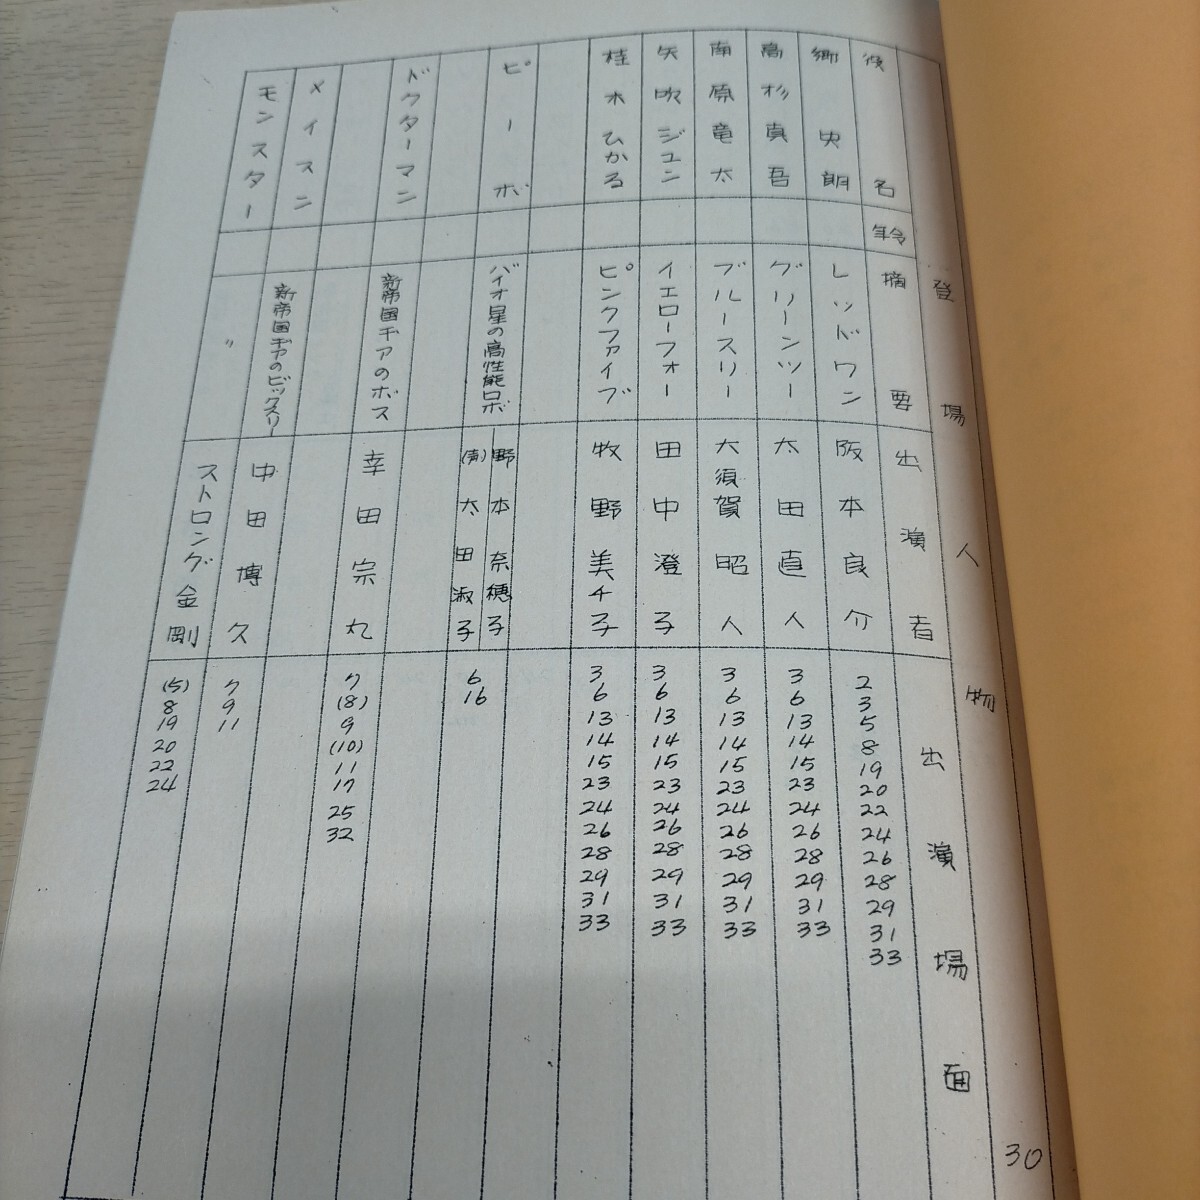 登場人物
役名
年令
摘要
出演者
出演場面
郷史朗
レッドワン
阪本良介
2
3
5
8
19
20
22
24
26
28
29
31
33
高杉真吾
グリーンツー
太田直人
3
6
13
14
15
23
24
26
28
29
31
33
南原竜太
ブルースリー
大須賀昭人
3
6
13
14
15
23
24
26
28
29
31
33
矢吹ジュン
イエローフォー
田中澄子
3
6
13
14
15
23
24
26
28
29
31
33
桂木ひかる
ピンクファイブ
牧野美千子
3
6
13
14
15
23
24
26
28
29
31
33
ピーボ
バイオ星の高性能ロボ
野本奈穂子
(声)太田淑子
6
16
ドクターマン
新帝国ギアのボス
幸田宗丸
7
(8)
9
(10)
11
17
25
32
メイスン
新帝国ギアのビックスリー
中田博久
7
9
11
モンスター
〃
ストロング金剛
(5)
8
19
20
22
24
30